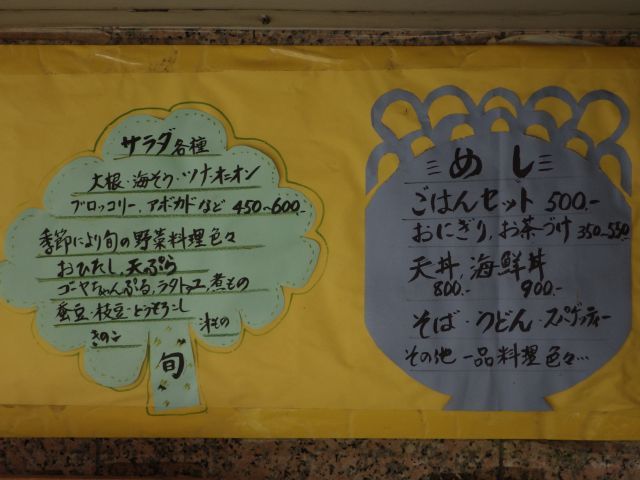 サラダ各種
大根・海そう・ツナオニオン
ブロッコリー、アボカドなど 450~600.-
季節により旬の野菜料理色々
おひたし、天ぷら
ゴーヤちゃんぷる、ラタトゥユ、煮もの
蚕豆・枝豆・とうもろこし
きのこ
旬
めし
ごはんセット 500.-
おにぎり、お茶づけ 350-550
天丼、海鮮丼
800.- 900.-
そば・うどん・スパゲッティー
その他 一品料理色々…